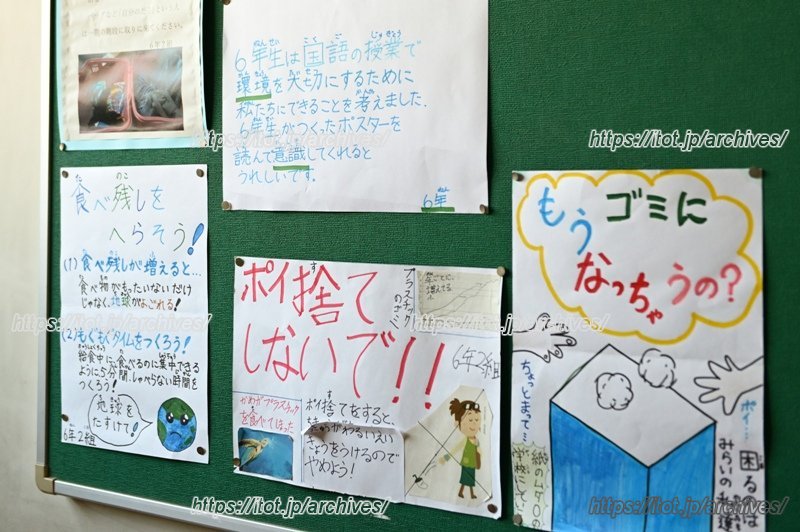 一階の階段に取りに来てください。
6年2組
6年生は国語の授業で
環境を大切にするために
私たちにできることを考えました。
6年生がつくったポスターを
読んで意識してくれると
うれしいです。
6年
食べ残しを
へらそう!
(1)食べ残しが増えると…
食べ物がもったいないだけ
じゃなく、地球がよごれる!
(2)もぐもぐタイムをつくろう!
給食中に、食べるのに集中できる
ように5分間、しゃべらない時間を
つくろう!
地球を
たすけて!
6年2組
ポイ捨て
しないで!!
プラスチック
のゴミ
6年2組
かめがプラスチック
を食べてしまった
ポイ捨てをすると、
きょうをうけるので
やめよう!
もうゴミに
なっちゃうの?
ちょっとまって…
ポイ…
困るのは
みらいの
https://itot.jp/archives/
https://itot.jp/archives/
https://itot.jp/archives/
https://itot.jp/archives/
https://itot.jp/archives/
https://itot.jp/archives/